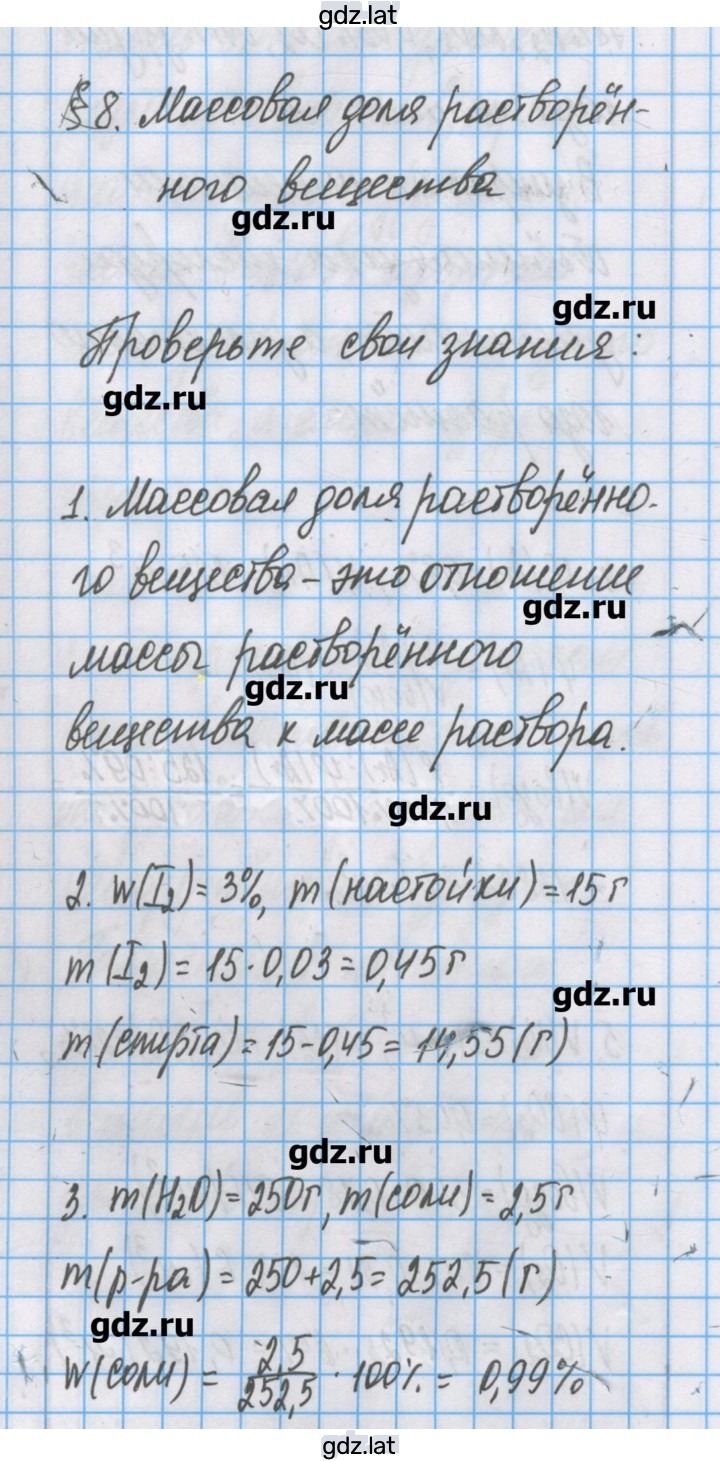 gdz.lat
§8. Массовая доля растворён-
ного вещества
gdz.ru
gdz.ru
Проверьте свои знания:
gdz.ru
1. Массовая доля растворённо-
го вещества – это отношение
gdz.ru
массы растворённого
gdz.ru
вещества к массе раствора.
gdz.ru
2. w(I₂) = 3%, m(настойки) = 15 г
m(I₂) = 15 · 0,03 = 0,45 г
gdz.ru
m(спирта) = 15 – 0,45 = 14,55 (г)
gdz.ru
3. m(H₂O) = 250 г, m(соли) = 2,5 г
m(р-ра) = 250 + 2,5 = 252,5 (г)
gdz.ru
w(соли) = 2,5/252,5 · 100% = 0,99%
gdz.lat